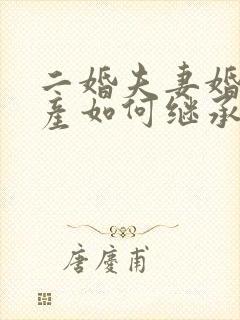 二婚夫妻婚
产如何继承
唐庆甫